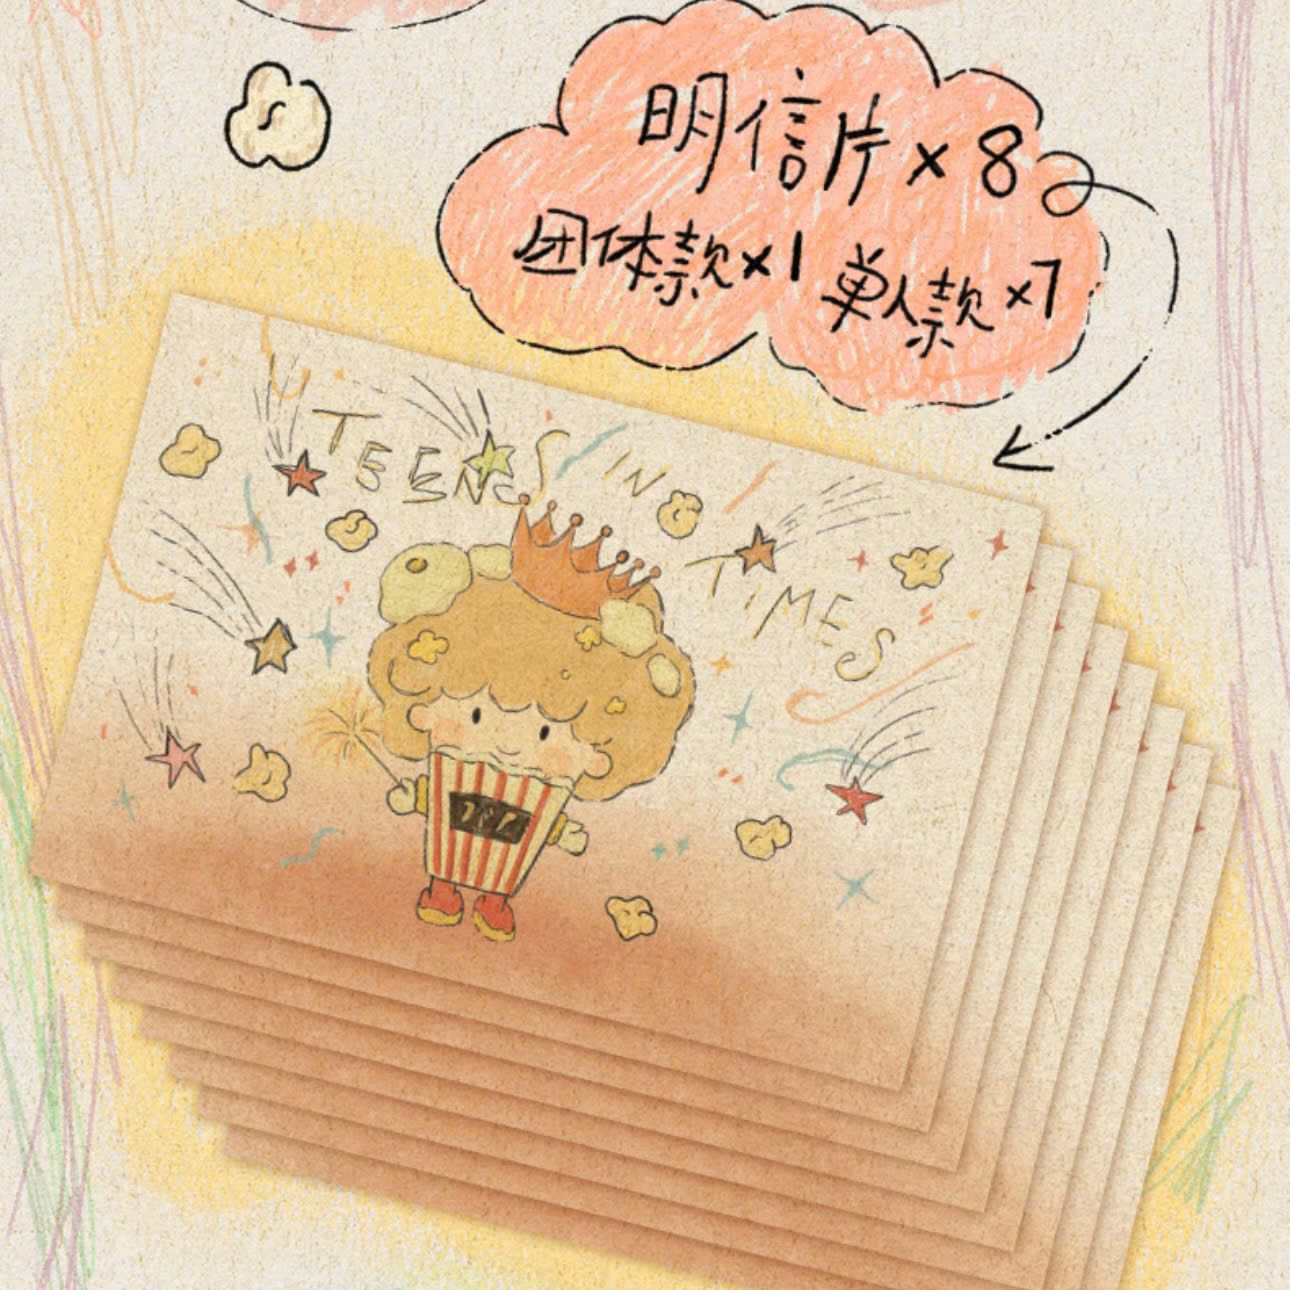 明信片×8
团体款×1 单人款×7
TEENS IN
TIMES